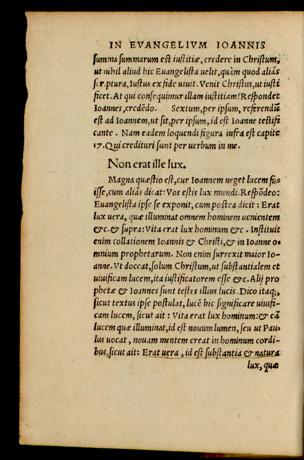 IN EVANGELIVM IOANNIS
summa summarum est iustitiæ, credere in Christum,
ut nihil aliud hic Euangelista uelit, quàm quod aliàs
scriptura, Iustus ex fide uiuit. Venit Christus, ut iusti
ficet. At qui consequimur illam iustitiam? Respondet
Ioannes, credẽdo. Sextum, per ipsum, referendũ
est ad Ioannem, ut sit, per ipsum, id est Ioanne testifi
cante. Nam eadem loquendi figura infra est capite
17. Qui credituri sunt per uerbum in me.
Non erat ille lux.
Magna quæstio est, cur Ioannem neget lucem fu
isse, cum alibi dicat: Vos estis lux mundi. Respõdeo:
Euangelista ipse se exponit, cum postea dicit: Erat
lux uera, quæ illuminat omnem hominem uenientem
&c. & supra: Vita erat lux hominum &c. Instituit
enim collationem Ioannis & Christi, & in Ioanne o-
mnium prophetarum. Non enim surrexit maior Io-
anne. Vt doceat, solum Christum, ut substantialem et
uiuificam lucem, ita iustificatorem esse &c. Alij pro
phetæ & Ioannes sunt testes illius lucis. Dico itaq;,
sicut textus ipse postulat, lucẽ hic significare uiuifi-
cam lucem, sicut ait: Vita erat lux hominum: & eã
lucem quæ illuminat, id est nouum lumen, seu ut Pau-
lus uocat, nouam mentem creat in hominum cordi-
bus, sicut ait: Erat uera, id est substantia & natura
lux, quæ